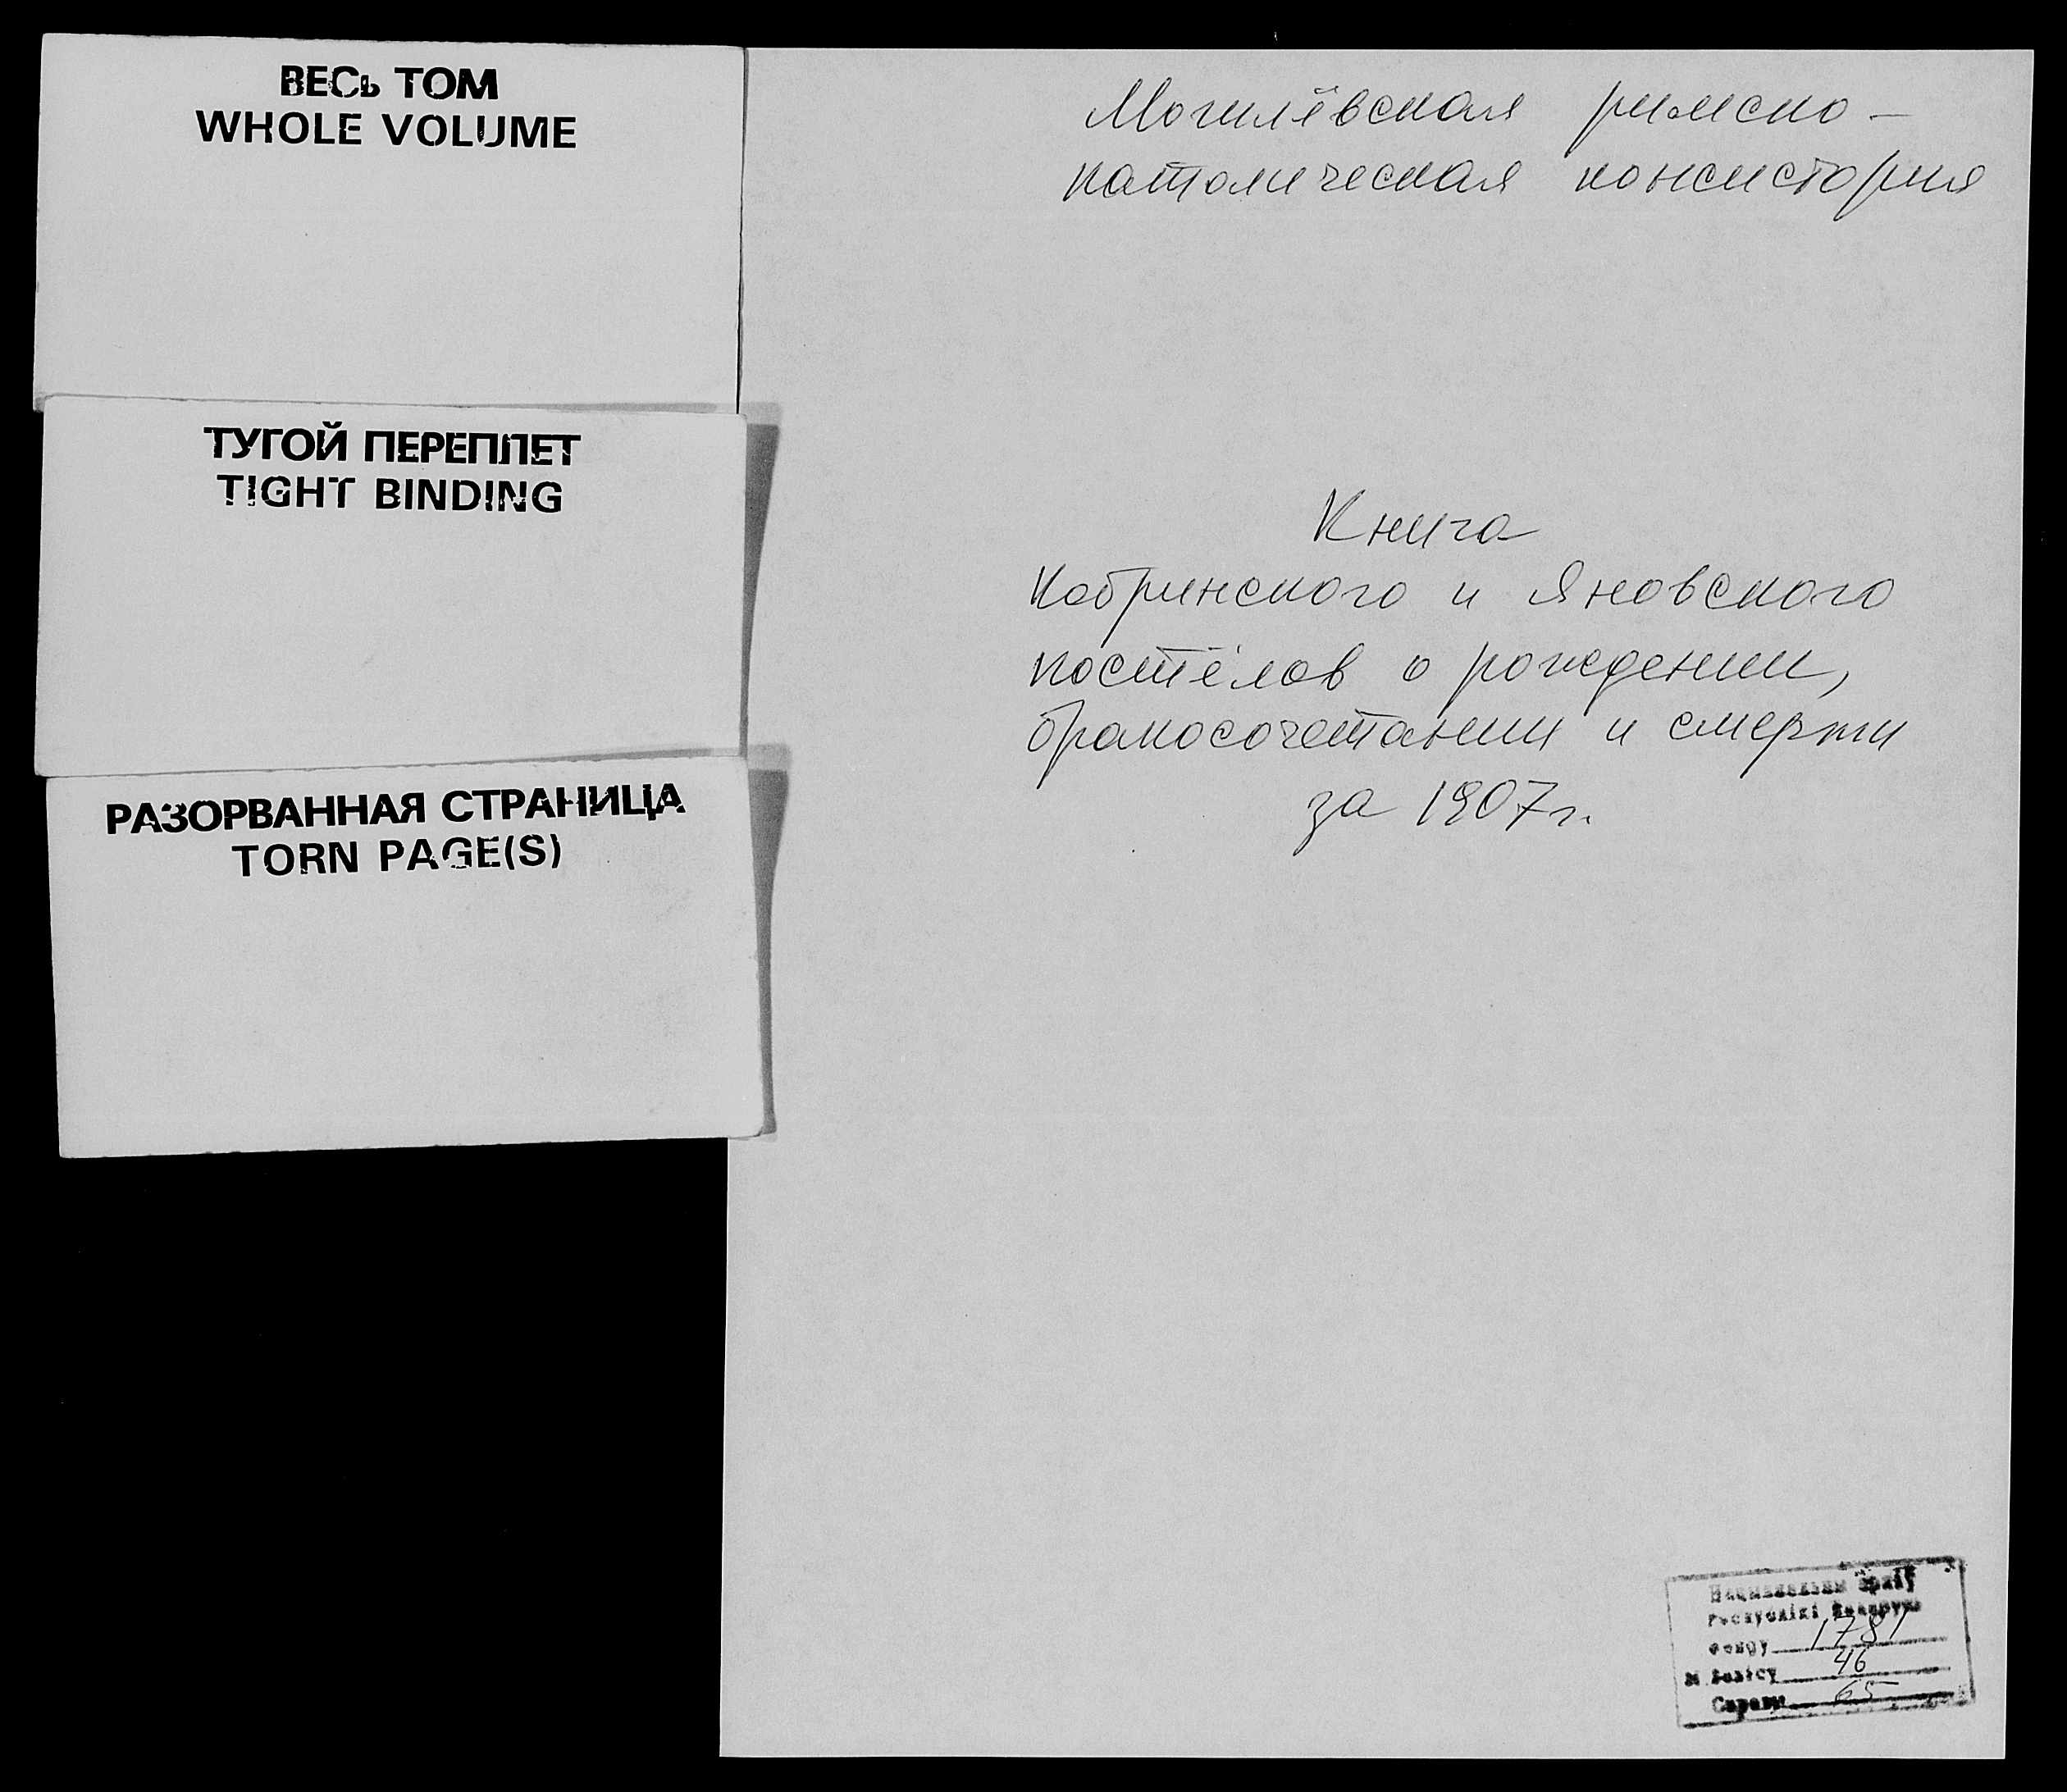 ВЕСЬ ТОМ
WHOLE VOLUME
ТУГОЙ ПЕРЕПЛЕТ
TIGHT BINDING
РАЗОРВАННАЯ СТРАНИЦА
TORN PAGE(S)
Могилёвская римско-
католическая консистория
Книга
Кобринского и Яновского
костёлов о рождении,
бракосочетании и смерти
за 1907г.
Нацыянальны архіў
Рэспублікі Беларусь
Фонду 1781
№ Вопісу 46
Справы 65